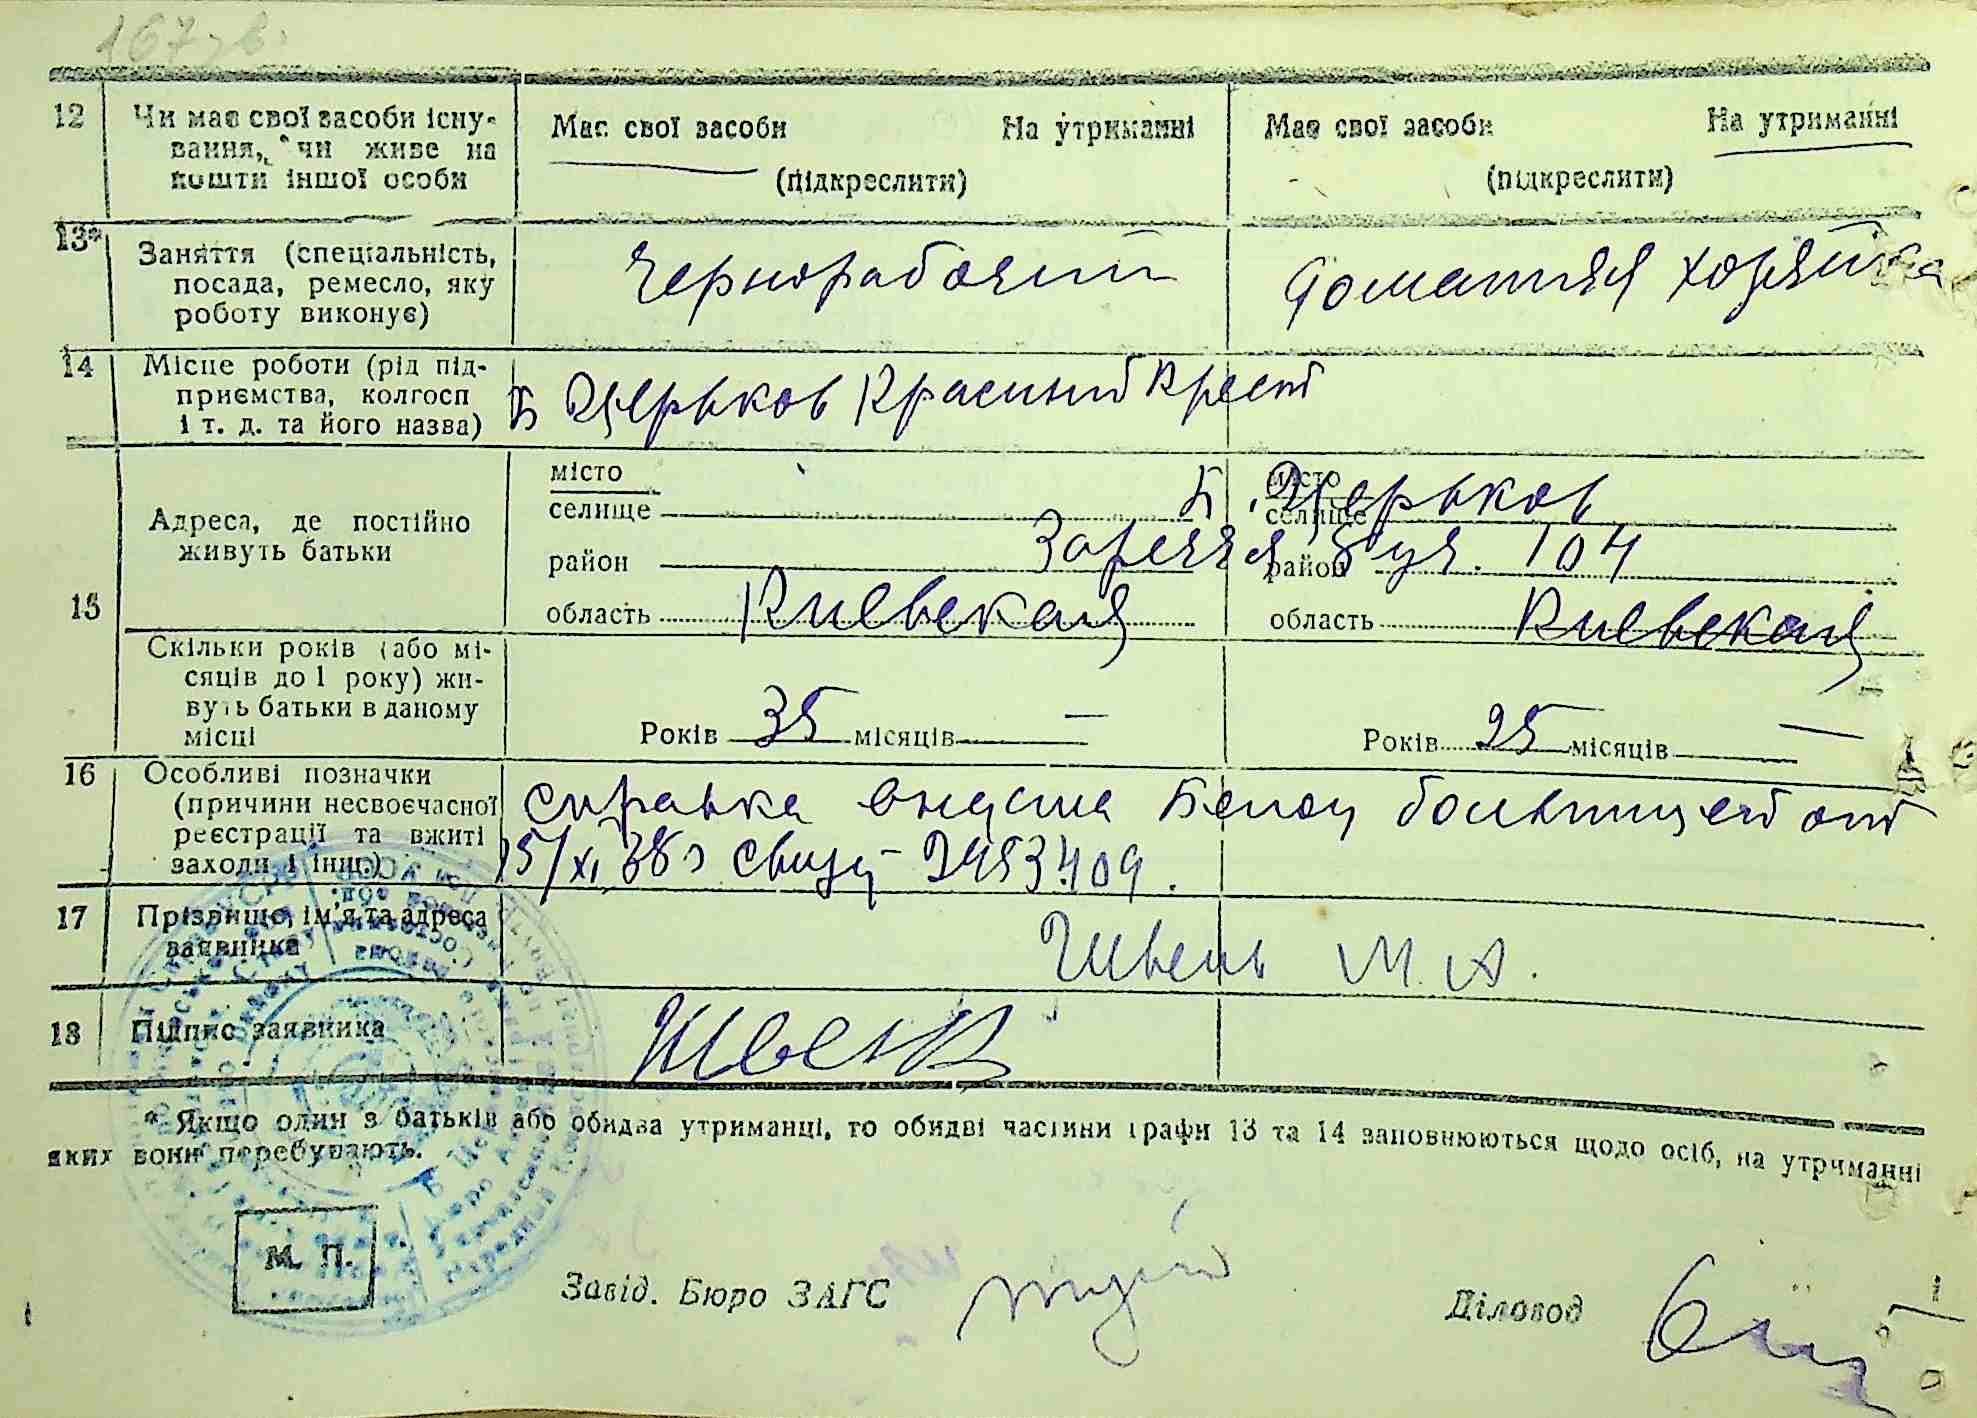 167 зв.
12 Чи має свої засоби існу-
вання, чи живе на
кошти іншої особи
Має свої засоби На утриманні
(підкреслити)
Має свої засоби На утриманні
(підкреслити)
13* Заняття (спеціальність,
посада, ремесло, яку
роботу виконує)
Чернорабочий
Домашняя хозяйка
14 Місце роботи (рід під-
приємства, колгосп
і т. д. та його назва)
Б Церьков Красный Крест
15
Адреса, де постійно
живуть батьки
місто
селище
район
область Киевская
місто
селище
Б. Церьков
район
Заречня ул. 104
область Киевская
Скільки років (або мі-
сяців до 1 року) жи-
вуть батьки в даному
місці
Років 35 місяців —
Років 25 місяців —
16 Особливі позначки
(причини несвоєчасної
реєстрації та вжиті
заходи і інш.)
справка больницей от
15/XI 38 г 2453409.
17 Прізвище, ім'я та адреса
заявника
Швець М. А.
18 Підпис заявника
Швець
* Якщо один з батьків або обидва утриманці, то обидві частини графи 13 та 14 заповнюються щодо осіб, на утриманні
яких вони перебувають.
М. П.
Завід. Бюро ЗАГС
Діловод